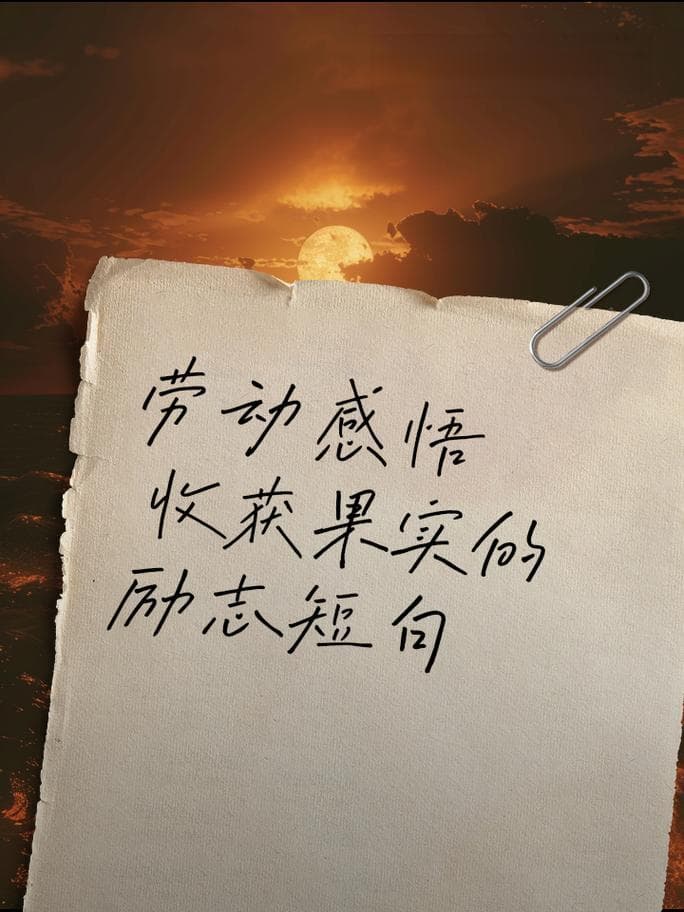 劳动感悟
收获果实的
励志短句